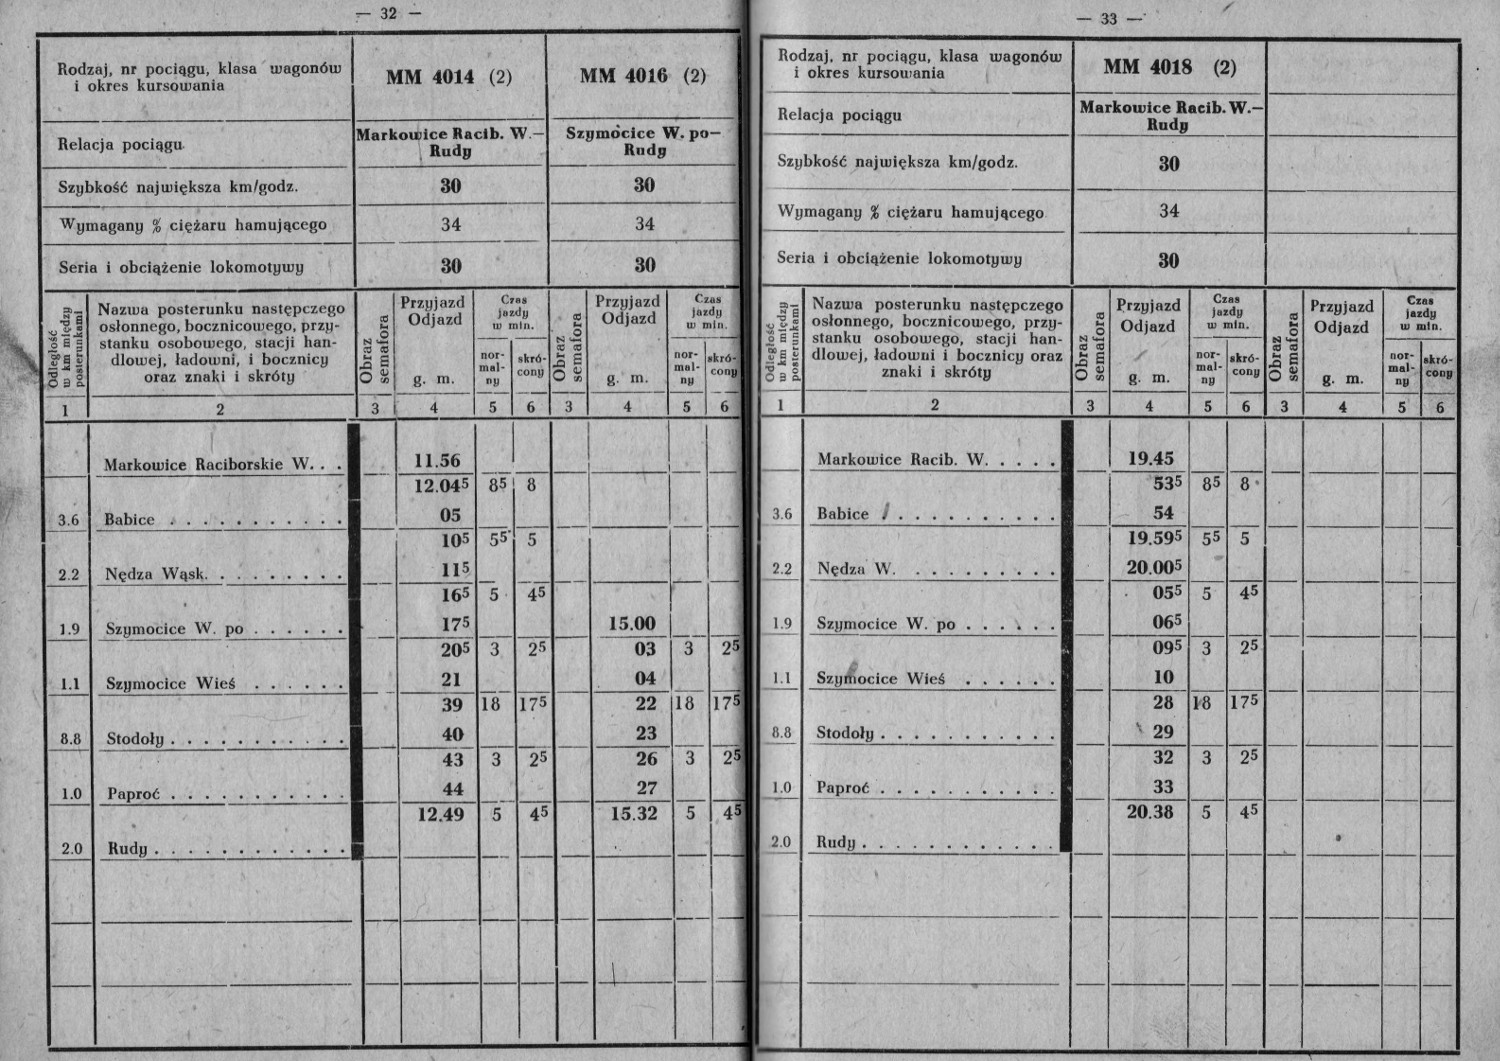 — 32 —
Rodzaj, nr pociągu, klasa wagonów
i okres kursowania
MM 4014 (2)
MM 4016 (2)
Relacja pociągu
Markowice Racib. W.—
Rudy
Szymocice W. po—
Rudy
Szybkość największa km/godz.
30
30
Wymagany % ciężaru hamującego
34
34
Seria i obciążenie lokomotywy
30
30
Odległość
w km między
posterunkami
Nazwa posterunku następczego
osłonnego, bocznicowego, przy-
stanku osobowego, stacji han-
dlowej, ładowni, i bocznicy
oraz znaki i skróty
Obraz
semafora
Przyjazd
Odjazd
g. m.
Czas
jazdy
w min.
nor-
mal-
ny
skró-
cony
Obraz
semafora
Przyjazd
Odjazd
g. m.
Czas
jazdy
w min.
nor-
mal-
ny
skró-
cony
1 2 3 4 5 6 3 4 5 6
Markowice Raciborskie W. . . 11.56
12.04⁵ 8⁵ 8
3.6 Babice . . . . . . . . . . . 05
10⁵ 5⁵ 5
2.2 Nędza Wąsk. . . . . . . . . 11⁵
16⁵ 5 4⁵
1.9 Szymocice W. po . . . . . . 17⁵ 15.00
20⁵ 3 2⁵ 03 3 2⁵
1.1 Szymocice Wieś . . . . . . 21 04
39 18 17⁵ 22 18 17⁵
8.8 Stodoły . . . . . . . . . . . 40 23
43 3 2⁵ 26 3 2⁵
1.0 Paproć . . . . . . . . . . . 44 27
12.49 5 4⁵ 15.32 5 4⁵
2.0 Rudy . . . . . . . . . . . .
— 33 —
Rodzaj, nr pociągu, klasa wagonów
i okres kursowania
MM 4018 (2)
Relacja pociągu
Markowice Racib. W.—
Rudy
Szybkość największa km/godz.
30
Wymagany % ciężaru hamującego
34
Seria i obciążenie lokomotywy
30
Odległość
w km między
posterunkami
Nazwa posterunku następczego
osłonnego, bocznicowego, przy-
stanku osobowego, stacji han-
dlowej, ładowni i bocznicy oraz
znaki i skróty
Obraz
semafora
Przyjazd
Odjazd
g. m.
Czas
jazdy
w min.
nor-
mal-
ny
skró-
cony
Obraz
semafora
Przyjazd
Odjazd
g. m.
Czas
jazdy
w min.
nor-
mal-
ny
skró-
cony
1 2 3 4 5 6 3 4 5 6
Markowice Racib. W. . . . . 19.45
53⁵ 8⁵ 8
3.6 Babice . . . . . . . . . . . 54
19.59⁵ 5⁵ 5
2.2 Nędza W. . . . . . . . . . 20.00⁵
05⁵ 5 4⁵
1.9 Szymocice W. po . . . . . . 06⁵
09⁵ 3 2⁵
1.1 Szymocice Wieś . . . . . . 10
28 18 17⁵
8.8 Stodoły . . . . . . . . . . . 29
32 3 2⁵
1.0 Paproć . . . . . . . . . . . 33
20.38 5 4⁵
2.0 Rudy . . . . . . . . . . . .